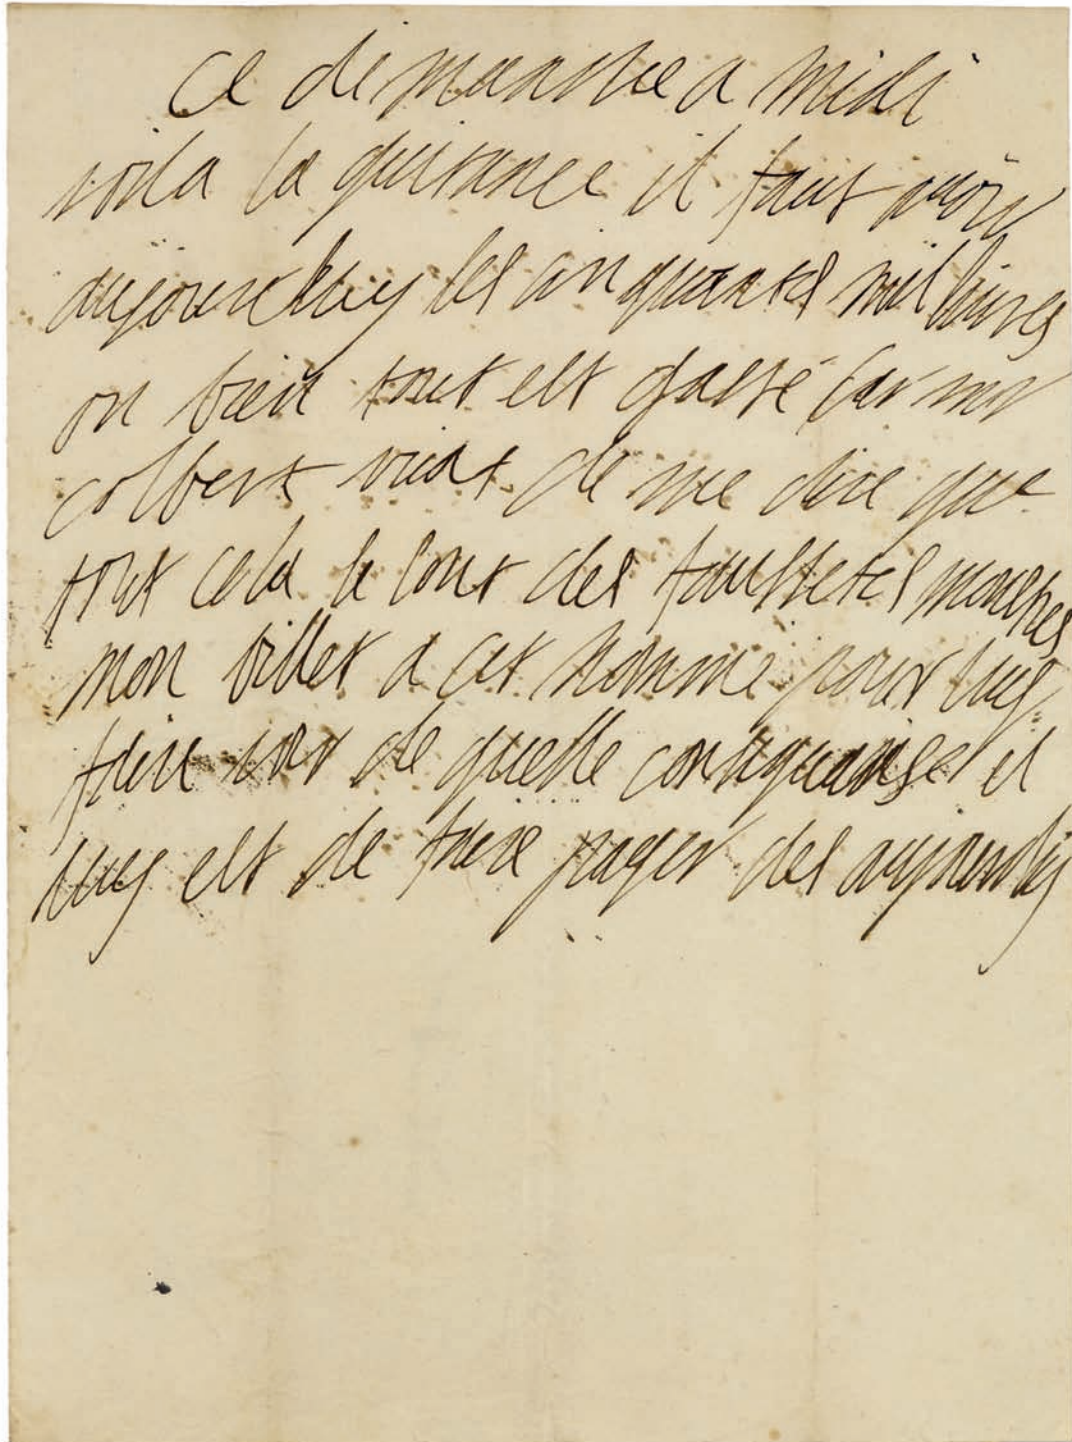 ce dimanche a midi
voila la quitance il faut avoir
aujourdhuy les cinquantes mil livres
ou bien tout est gasté car mr
colbert vient de me dire que
tout cela se sont des faussetes monstres
mon billet a cet homme pour luy
faire voir de quelle consequanse il
luy est de faire payer des aujourdhuy